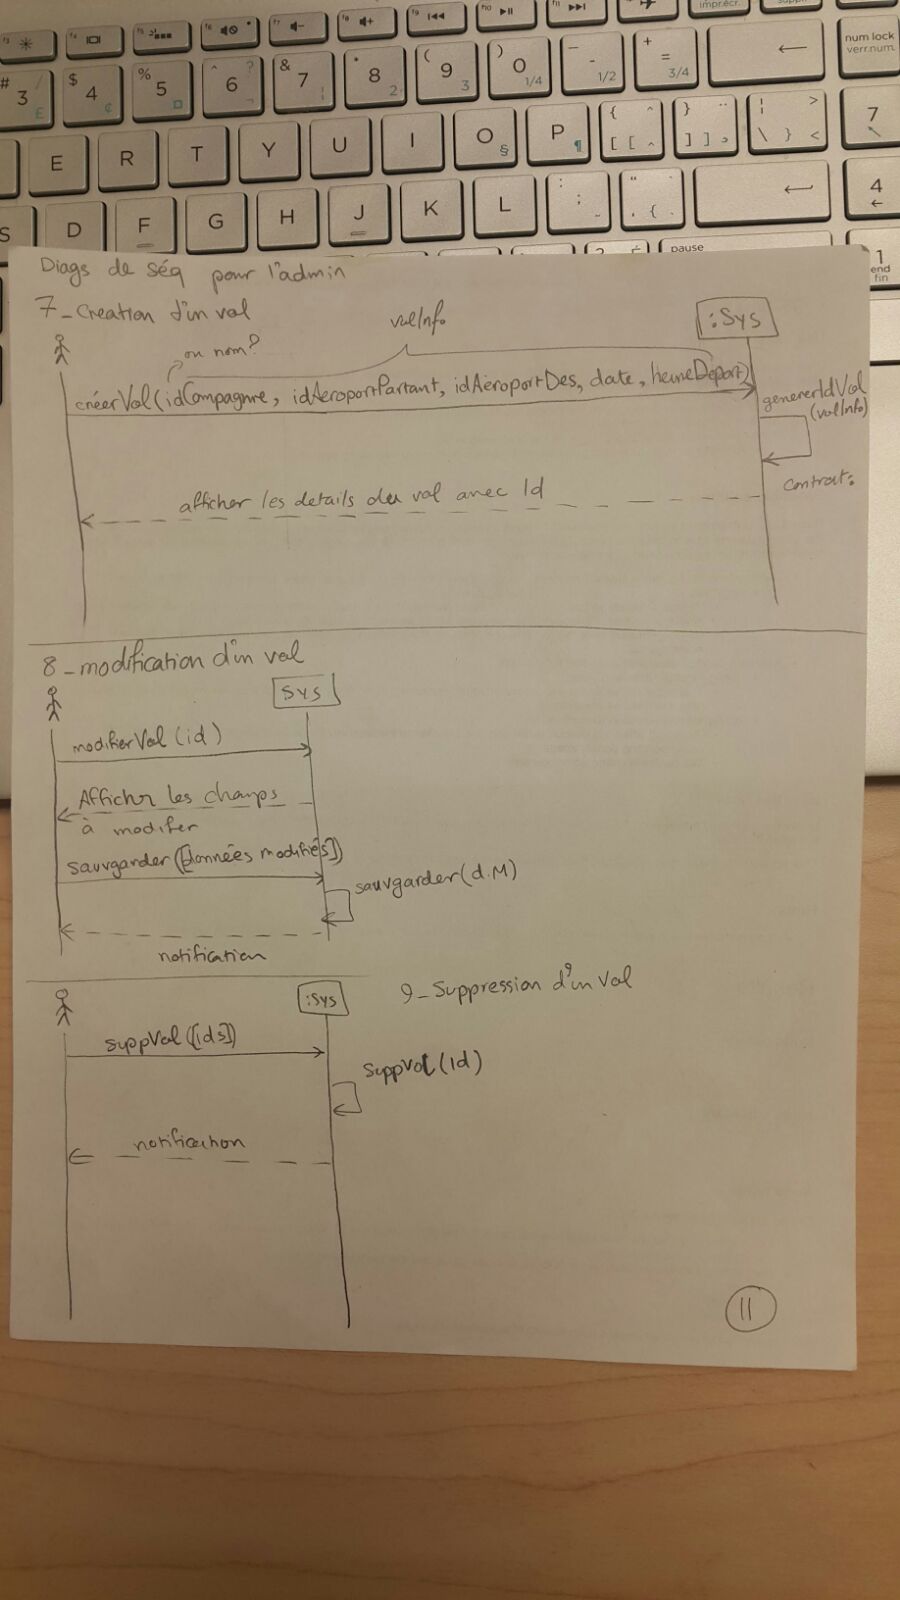 Diags de séq pour l'admin
7_Creation d'un vol
ou nom?
volInfo
:Sys
créerVol(idCompagnie, idAeroportPartant, idAeroportDes, date, heureDepart)
genererIdVol
(volInfo)
contrat:
afficher les details du vol avec Id
8_modification d'un vol
Sys
modifierVol(id)
Afficher les champs
à modifer
Sauvgarder([données modifiés])
sauvgarder(d.M)
notification
9_Suppression d'un Vol
:Sys
suppVol([ids])
SuppVol(Id)
notification
11